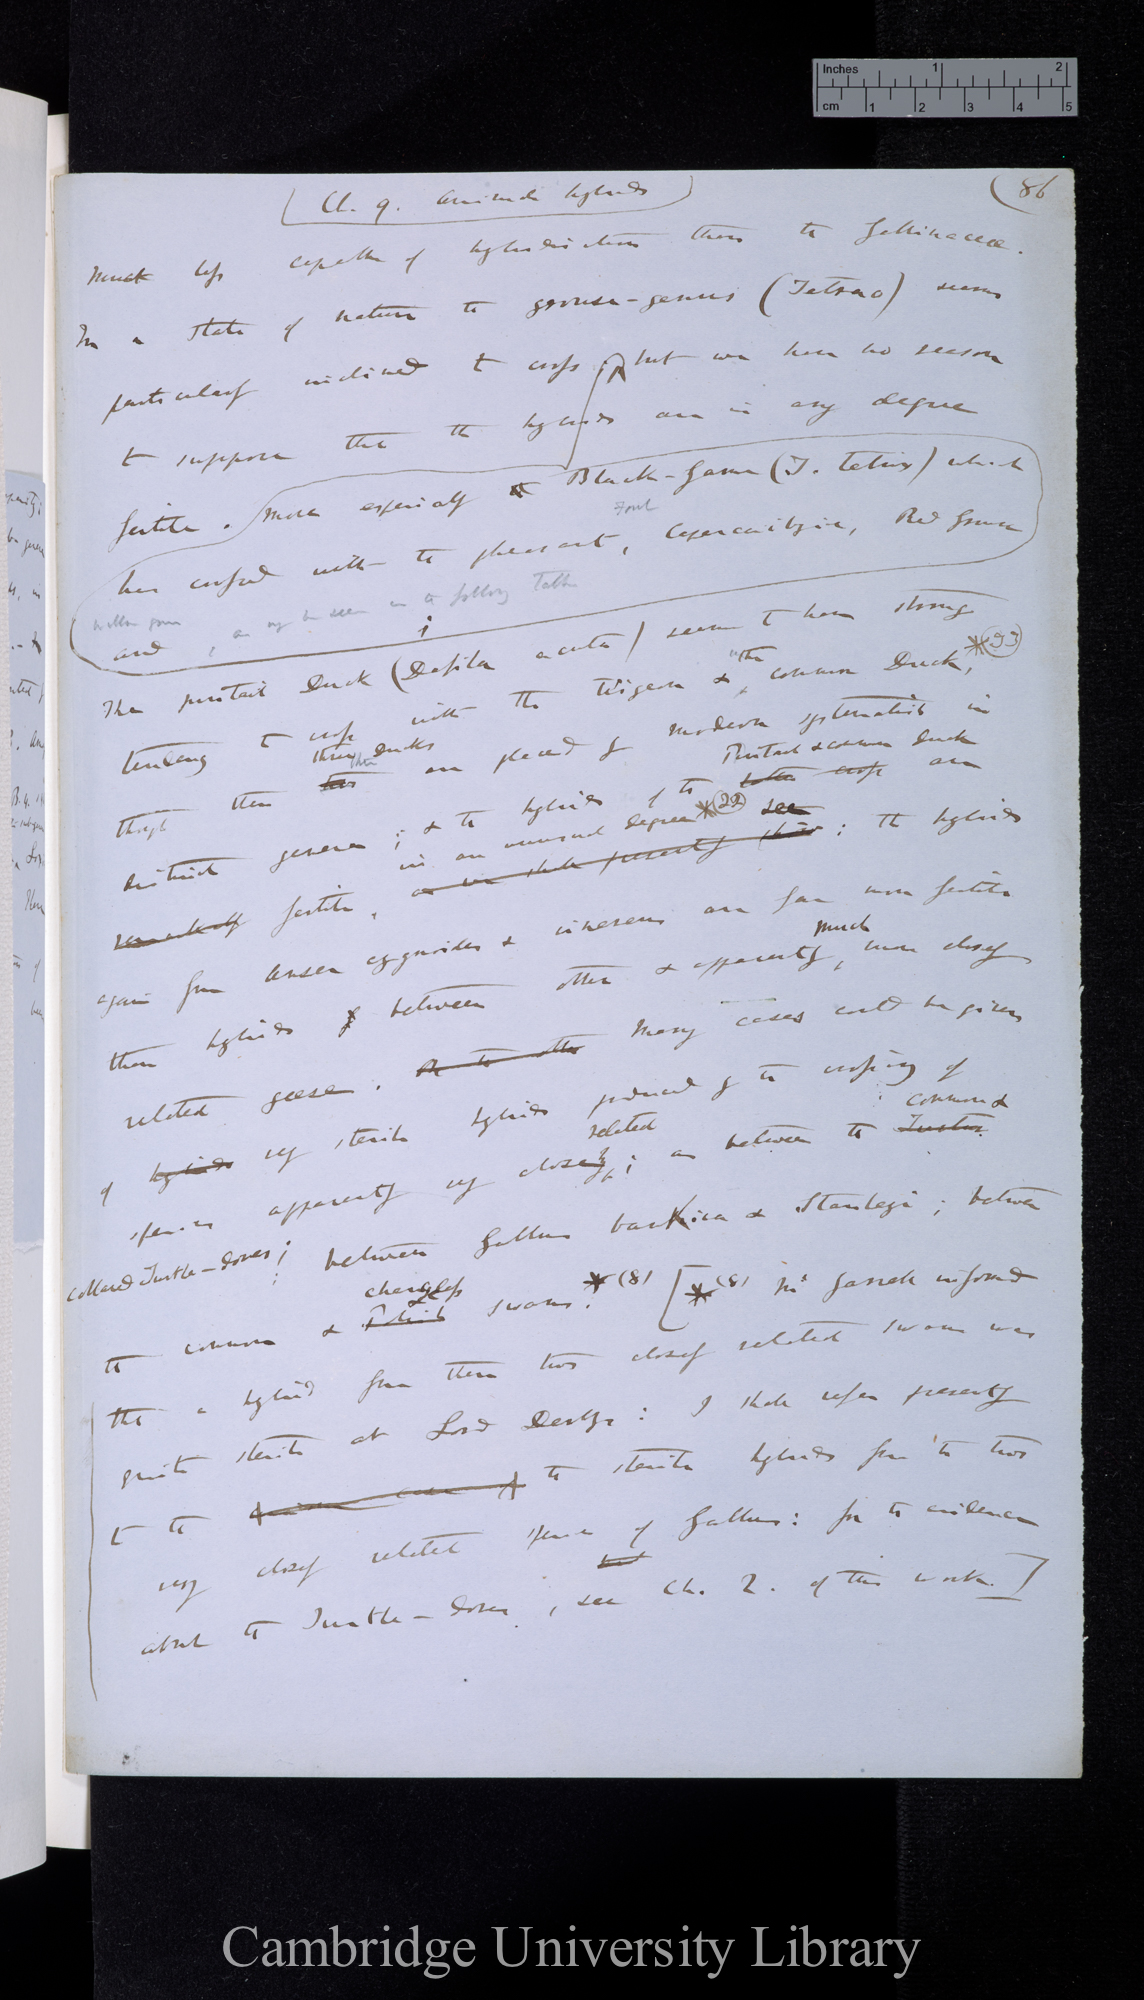 Inches 1 2
cm 1 2 3 4 5
Ch. 9. Animals hybrids
86
much less capable of hybridisation than the Gallinaceæ.
In a state of nature the grouse-genus (Tetrao) seems
particularly inclined to cross; but we have no reason
to suppose that the hybrids are in any degree
fertile. more especially the Black-Game (T. tetrix) which
Fowl
has crossed with the pheasant, Capercailzie, Red Grouse
willow grouse
and , as may be seen in the following Table
The pintail Duck (Dafila acuta) seems to have strong
tendency to cross with the Wigeon & the common Duck, *(23)
though these two three ducks are placed by modern systematists in
Pintail & common Duck
distinct genera; & the hybrids of the latter cross are
in an unusual degree *(22)
remarkably fertile, as we shall presently see; the hybrids
again from Anser cygnoides & cinereus are far more fertile
than hybrids between other & apparently, much more closely
related geese. Many cases could be given
of hybrids very sterile hybrids produced by the crossing of
related
common &
species apparently very closely; as between the Turtur
collared Turtle-doves; between Gallus bankiva & Stanleyi; between
changeless
the common & Polish swans. *(8) [*(8) Mr Garrett informed
tht a hybrid from these two closely related swans was
quite sterile at Lord Derby's: I shall refer presently
to the the sterile hybrids from the two
very closely related species of Gallus: for the evidence
about the Turtle-doves, but see Ch. 2. of this work.]
Cambridge University Library